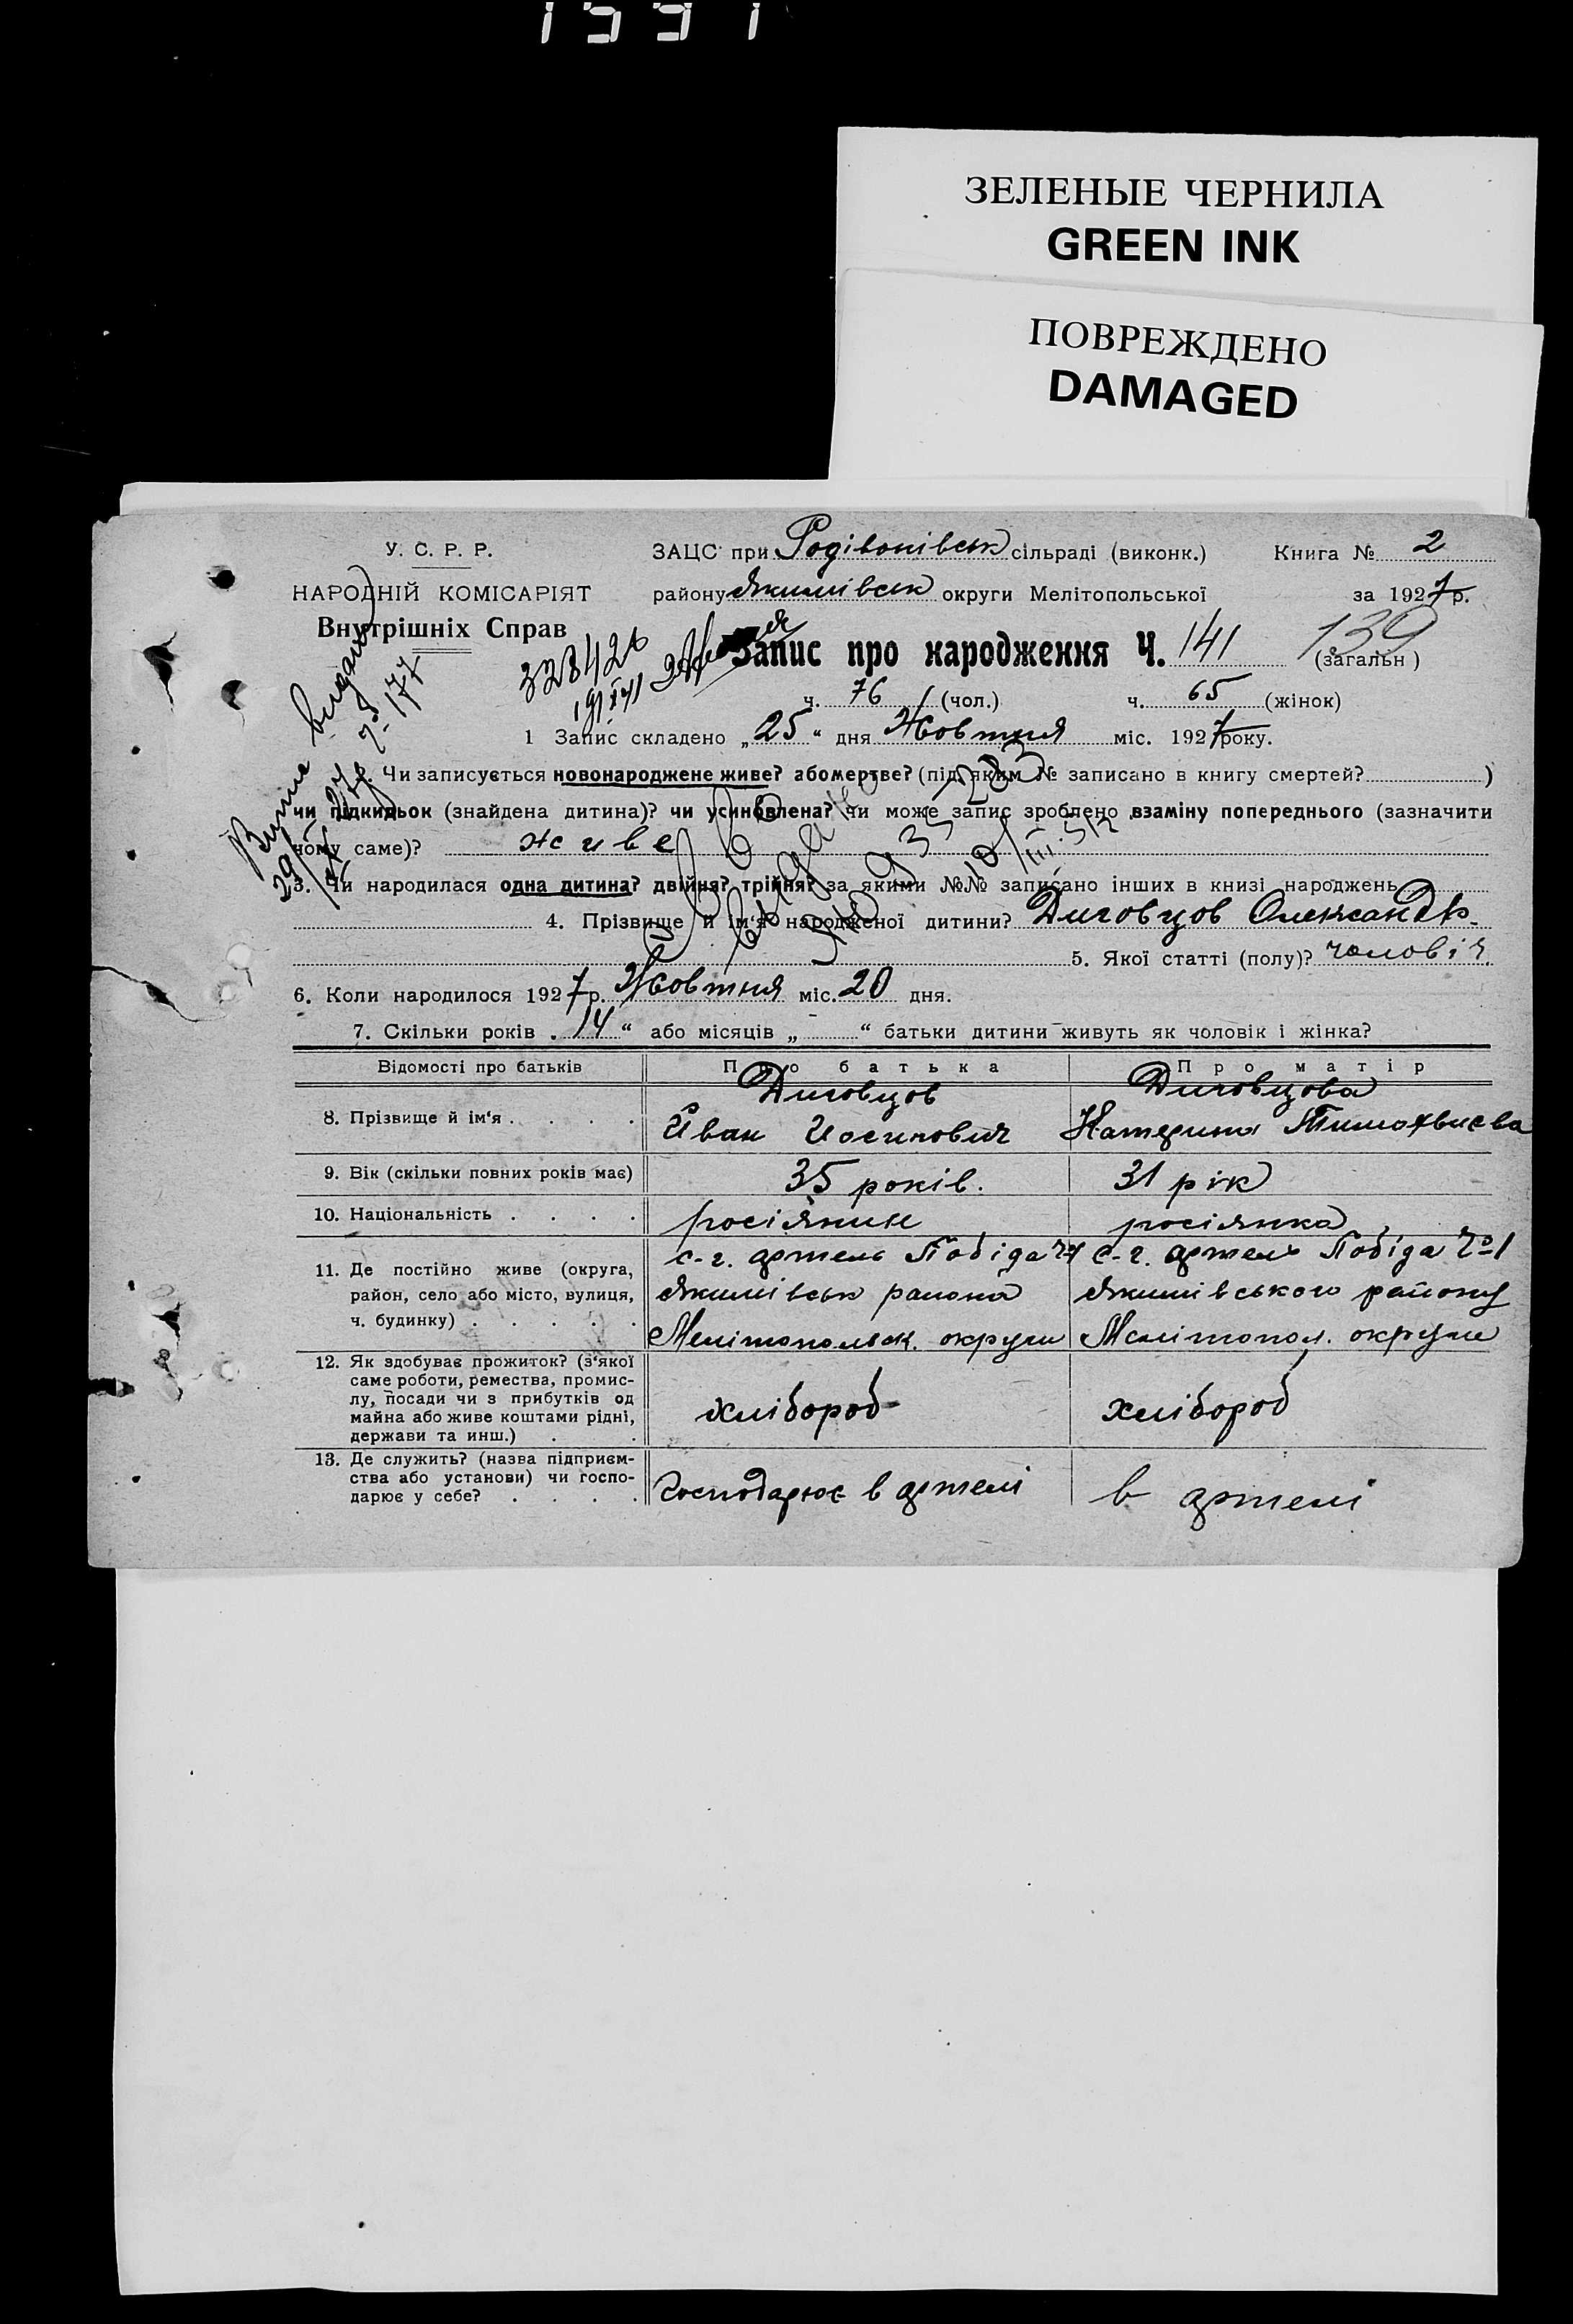 1991
ЗЕЛЕНЫЕ ЧЕРНИЛА
GREEN INK
ПОВРЕЖДЕНО
DAMAGED
У. С. Р. Р.
НАРОДНІЙ КОМІСАРІЯТ
Внутрішніх Справ
ЗАЦС при Родівонівськ сільраді (виконк.) Книга № 2
району Якимівськ округи Мелітопольської за 1927 р.
Запис про народження Ч. 141 139 (загальн)
328426
ч. 76 (чол.) ч. 65 (жінок)
1 Запис складено „25“ дня Жовтня міс. 1927 року.
Чи записується новонароджене живе? або мертве? (під яким № записано в книгу смертей? )
чи підкидьок (знайдена дитина)? чи усиновлена? чи може запис зроблено взаміну попереднього (зазначити
чому саме)? живе
3. Чи народилася одна дитина? двійня? трійня? за якими №№ записано інших в книзі народжень
4. Прізвище й ім'я народженої дитини? Диговцов Олександр
5. Якої статті (полу)? чоловіч.
6. Коли народилося 1927 р. Жовтня міс. 20 дня.
7. Скільки років „14“ або місяців „ “ батьки дитини живуть як чоловік і жінка?
Відомості про батьків Про батька Про матір
8. Прізвище й ім'я . . . . Диговцов Иван Иосипович Диговцова Катерина
9. Вік (скільки повних років має) 35 років. 31 рік
10. Національність . . . . росіянин росіянка
11. Де постійно живе (округа,
район, село або місто, вулиця,
ч. будинку) . . . . .
с-г. артель Побіда Ч1
Якимівськ района
Мелітопольск. округи
с-г. артель Побіда Ч1
Якимівського району
Мелітопол. округи
12. Як здобуває прожиток? (з'якої
саме роботи, ремества, промис-
лу, посади чи з прибутків од
майна або живе коштами рідні,
держави та инш.) . .
хлібороб хлібороб
13. Де служить? (назва підприєм-
ства або установи) чи госпо-
дарює у себе? . . . .
Господарює в артелі в артелі